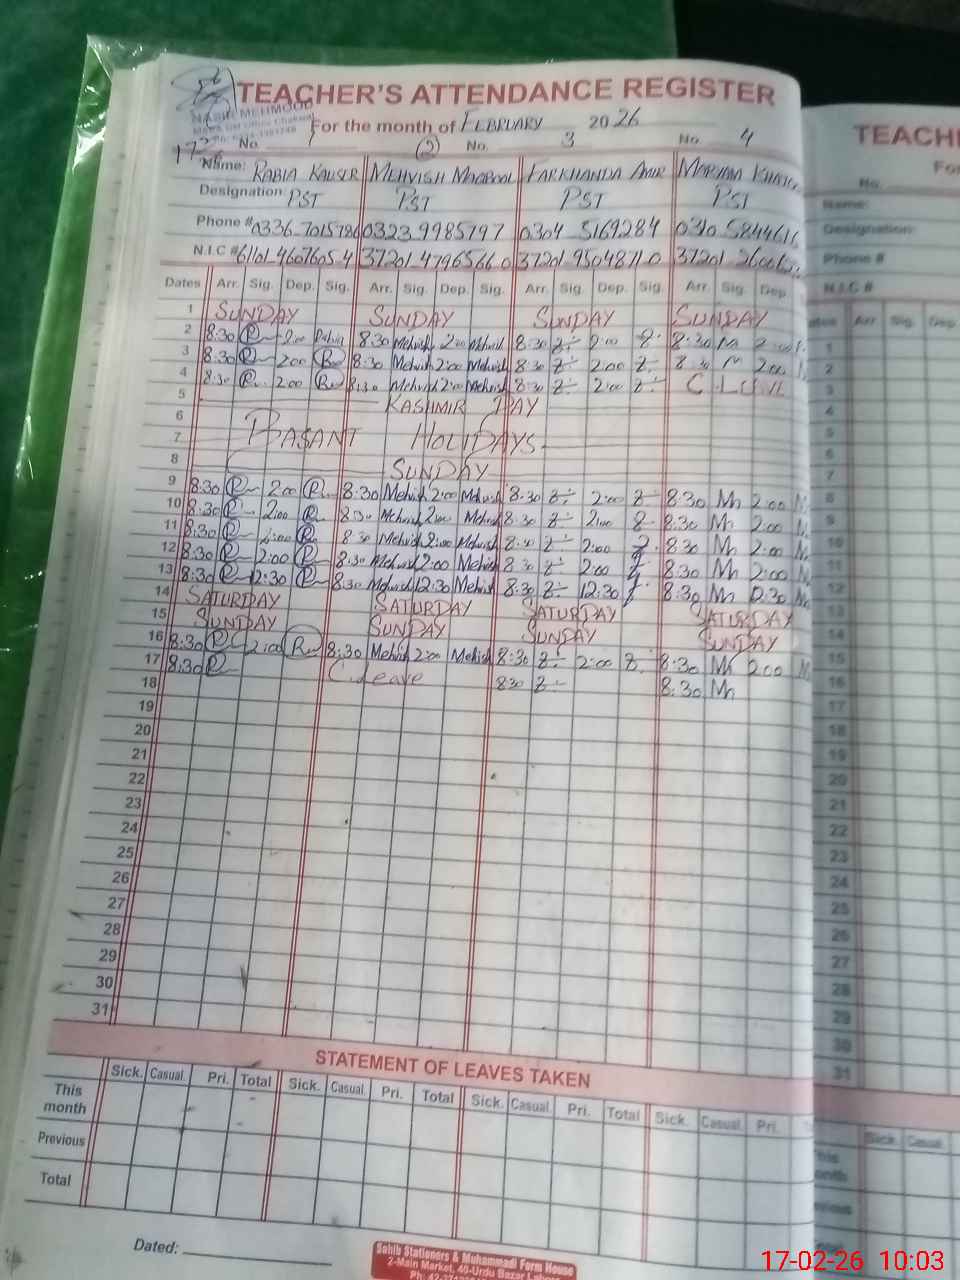 TEACHER'S ATTENDANCE REGISTER
NASIR MEHMOOD
For the month of FEBRUARY 2026
No. 1 (2) No. 3 No. 4
Name: RABIA KAUSER MEHVISH MAQBOOL FARKHANDA AMIR MARYAM
Designation: PST PST PST PST
Phone # 0336-7015786 0323 9985797 0304 5169284 0340 5844616
N.I.C # 61101 4607605 4 37201 4796566 0 37201 9504871 0 37201
Dates Arr. Sig. Dep. Sig. Arr. Sig. Dep. Sig. Arr. Sig. Dep. Sig. Arr. Sig. Dep.
1 SUNDAY SUNDAY SUNDAY SUNDAY
2 8:30 R 2:00 Rabia 8:30 Mehvish 2:00 Mehvish 8:30 2:00 8:30 M 2:00
3 8:30 R 2:00 R 8:30 Mehvish 2:00 Mehvish 8:30 2:00 8:30 M 2:00
4 8:30 R 2:00 R 8:30 Mehvish 2:00 Mehvish 8:30 2:00 C L
5 KASHMIR DAY
6
7 BASANT HOLIDAYS
8 SUNDAY
9 8:30 R 2:00 R 8:30 Mehvish 2:00 Mehvish 8:30 2:00 8:30 Mn 2:00
10 8:30 R 2:00 R 8:30 Mehvish 2:00 Mehvish 8:30 2:00 8:30 Mn 2:00
11 8:30 R 2:00 R 8:30 Mehvish 2:00 Mehvish 8:30 2:00 8:30 Mn 2:00
12 8:30 R 2:00 R 8:30 Mehvish 2:00 Mehvish 8:30 2:00 8:30 Mn 2:00
13 8:30 R 12:30 R 8:30 Mehvish 12:30 Mehvish 8:30 12:30 8:30 Mn 12:30
14 SATURDAY SATURDAY SATURDAY SATURDAY
15 SUNDAY SUNDAY SUNDAY SUNDAY
16 8:30 R 2:00 R 8:30 Mehvish 2:00 Mehvish 8:30 2:00 8:30 Mn 2:00
17 8:30 R C.Leave 8:30 8:30 Mn
18
19
20
21
22
23
24
25
26
27
28
29
30
31
STATEMENT OF LEAVES TAKEN
Sick. Casual. Pri. Total Sick. Casual. Pri. Total Sick. Casual. Pri. Total Sick. Casual. Pri.
This month
Previous
Total
Dated:
Sahib Stationers & Muhammadi Form House
2-Main Market, 40-Urdu Bazar Lahore
TEACH
No.
Name:
Designation:
Phone #
N.I.C #
Arr. Sig. Dep.
1
2
3
4
5
6
7
8
9
10
11
12
13
14
15
16
17
18
19
20
21
22
23
24
25
26
27
28
29
30
31
Sick. Casual.
17-02-26 10:03